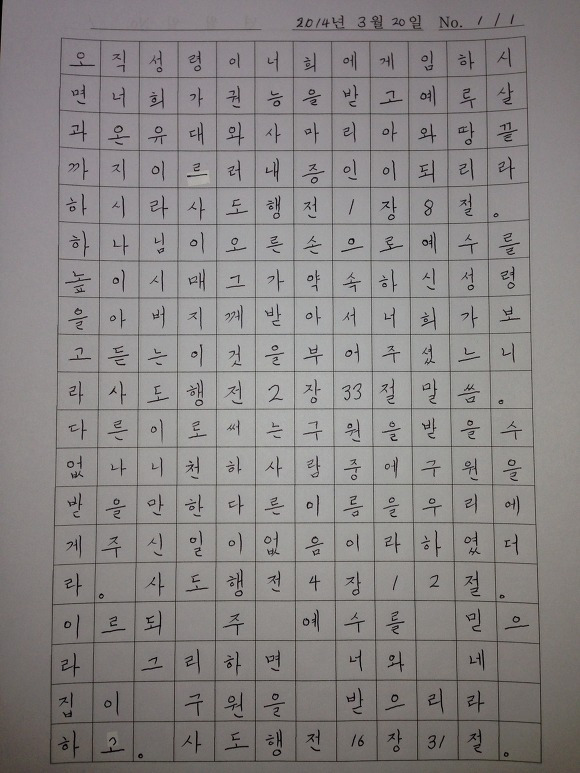 2014년 3월 20일 No. 1/1
오직성령이너희에게임하시
면너희가권능을받고예루살
과온유대와사마리아와땅끝
까지이르러내증인이되리라
하시라사도행전1장8절。
하나님이오른손으로예수를
높이시매그가약속하신성령
을아버지께받아서너희가보
고듣는이것을부어주셨느니
라사도행전2장33절말씀。
다른이로써는구원을받을수
없나니천하사람중에구원을
받을만한다른이름을우리에
게주신일이없음이라하였더
라。사도행전4장12절。
이르되 주 예수를 믿으
라 그리하면 너와 네
집이 구원을 받으리라
하고。사도행전16장31절。